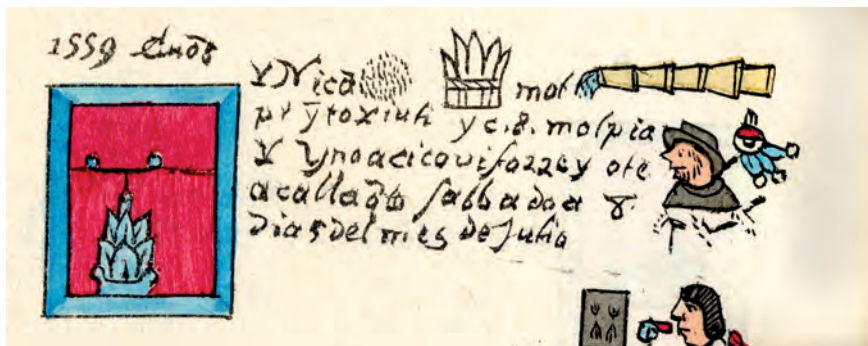 1559 años
YNica mol
pi yn toxiuh yc. 8. molpia
Y Ynoacico visorrey ote
acalla sabbado a 8.
dias del mes de Julio